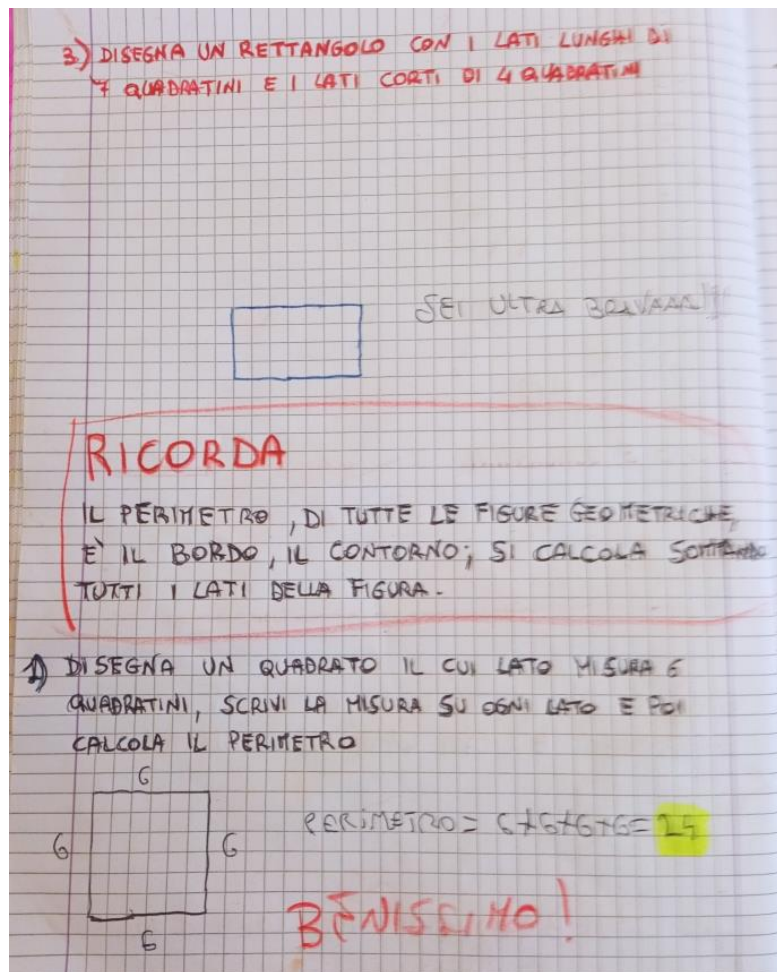 3) DISEGNA UN RETTANGOLO CON I LATI LUNGHI DI
7 QUADRATINI E I LATI CORTI DI 4 QUADRATINI
SEI ULTRA BRAVAAA!!
RICORDA
IL PERIMETRO, DI TUTTE LE FIGURE GEOMETRICHE,
E' IL BORDO, IL CONTORNO; SI CALCOLA SOMMANDO
TUTTI I LATI DELLA FIGURA.
1) DISEGNA UN QUADRATO IL CUI LATO MISURA 6
QUADRATINI, SCRIVI LA MISURA SU OGNI LATO E POI
CALCOLA IL PERIMETRO
6
PERIMETRO = 6+6+6+6= 24
6 6
6
BENISSIMO!